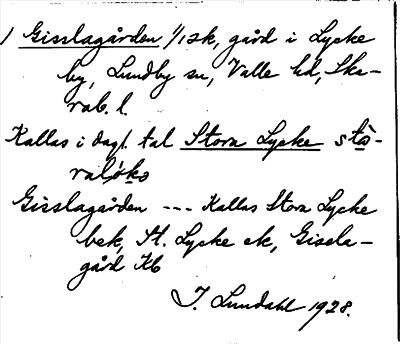 1 Gisslagården 1/1 sk, gård i Lycke
by, Lundby sn, Valle hd, Ska-
rab. l.
Kallas i dagl. tal Stora Lycke
Gisslagården --- Kallas Stora Lycke
bek, St. Lycke ek, Gissla-
gård Kb
I. Lundahl 1928.